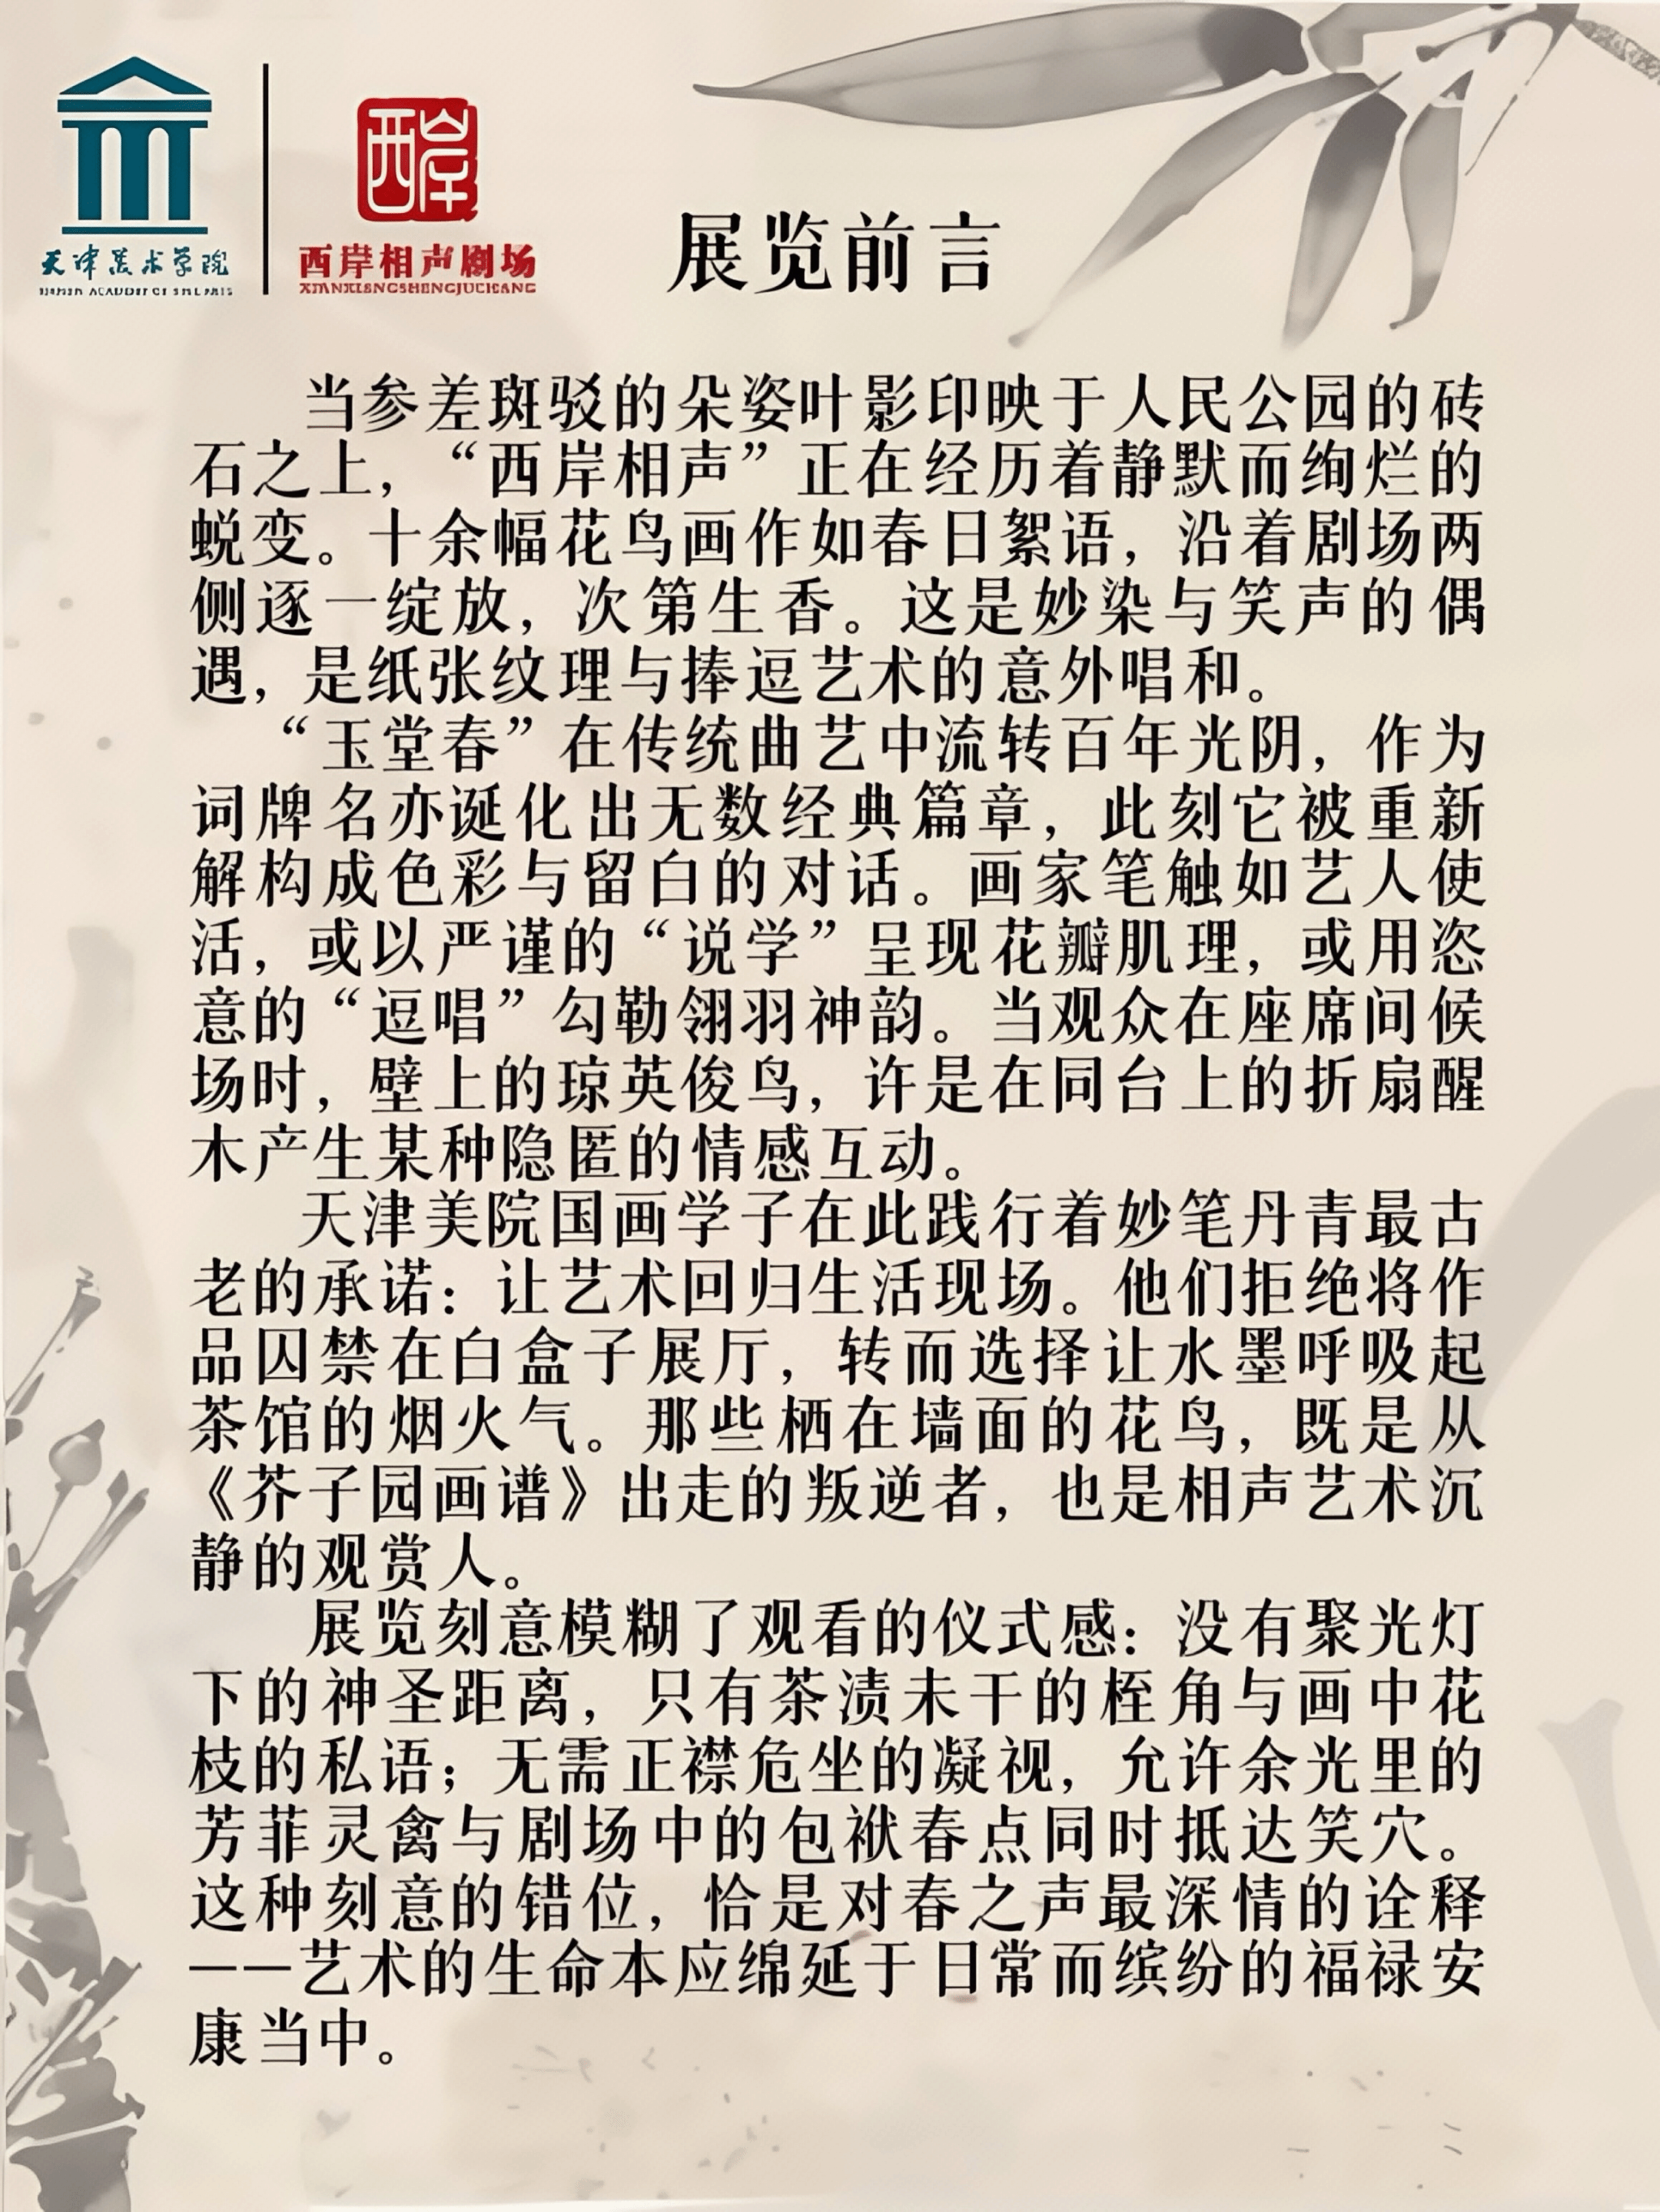 天津美术学院
西岸
西岸相声剧场
展览前言
当参差斑驳的朵姿叶影印映于人民公园的砖
石之上，“西岸相声”正在经历着静默而绚烂的
蜕变。十余幅花鸟画作如春日絮语，沿着剧场两
侧逐一绽放，次第生香。这是妙染与笑声的偶
遇，是纸张纹理与捧逗艺术的意外唱和。
“玉堂春”在传统曲艺中流转百年光阴，作为
词牌名亦诞化出无数经典篇章，此刻它被重新
解构成色彩与留白的对话。画家笔触如艺人使
活，或以严谨的“说学”呈现花瓣肌理，或用恣
意的“逗唱”勾勒翎羽神韵。当观众在座席间候
场时，壁上的琼英俊鸟，许是在同台上的折扇醒
木产生某种隐匿的情感互动。
天津美院国画学子在此践行着妙笔丹青最古
老的承诺：让艺术回归生活现场。他们拒绝将作
品囚禁在白盒子展厅，转而选择让水墨呼吸起
茶馆的烟火气。那些栖在墙面的花鸟，既是从
《芥子园画谱》出走的叛逆者，也是相声艺术沉
静的观赏人。
展览刻意模糊了观看的仪式感：没有聚光灯
下的神圣距离，只有茶渍未干的桎角与画中花
枝的私语；无需正襟危坐的凝视，允许余光里的
芳菲灵禽与剧场中的包袱春点同时抵达笑穴。
这种刻意的错位，恰是对春之声最深情的诠释
——艺术的生命本应绵延于日常而缤纷的福禄安
康当中。